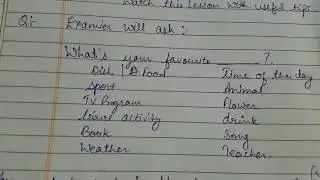 Watch this lesson with useful tips
Q:- Examier will ask :-
What's your favourite ______ ?
Dish | Food Time of the day
Sport Animal
TV Program Flower
activity drink
Book Song
Weather Teacher.